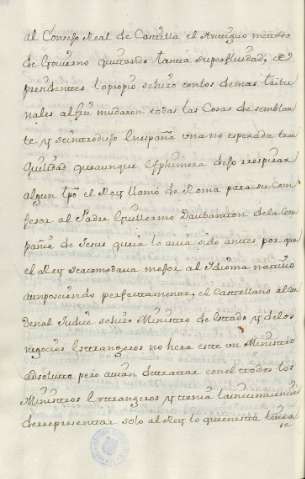 al Consejo Real de Castilla el Antiguo metodo
de Govierno quitando tanta superfluidad, de
pendientes lo propio se hizo con los demas tribu
nales al fin mudaron todas las Cosas de semblan
te y se introdujo en españa una no esperada tran
quilidad que aunque Ephimera dejo respirar
algun tpo el Rey llamó de Roma para su Con
fesor al Padre Guillermo Daubanton de la Com
pañia de Jesus que ia lo avia sido antes por que
el Rey se acomodava mejor al Idioma nativo
aun poseiendo perfectamente, el Castellano al Car
denal Judice se hizo Ministro de estado y de los
negocios estrangeros no hera este un Ministerio
absoluto pero avian de tratar con el todos los
Ministros estrangeros y tenia la incumbencia
de representar solo al Rey lo que